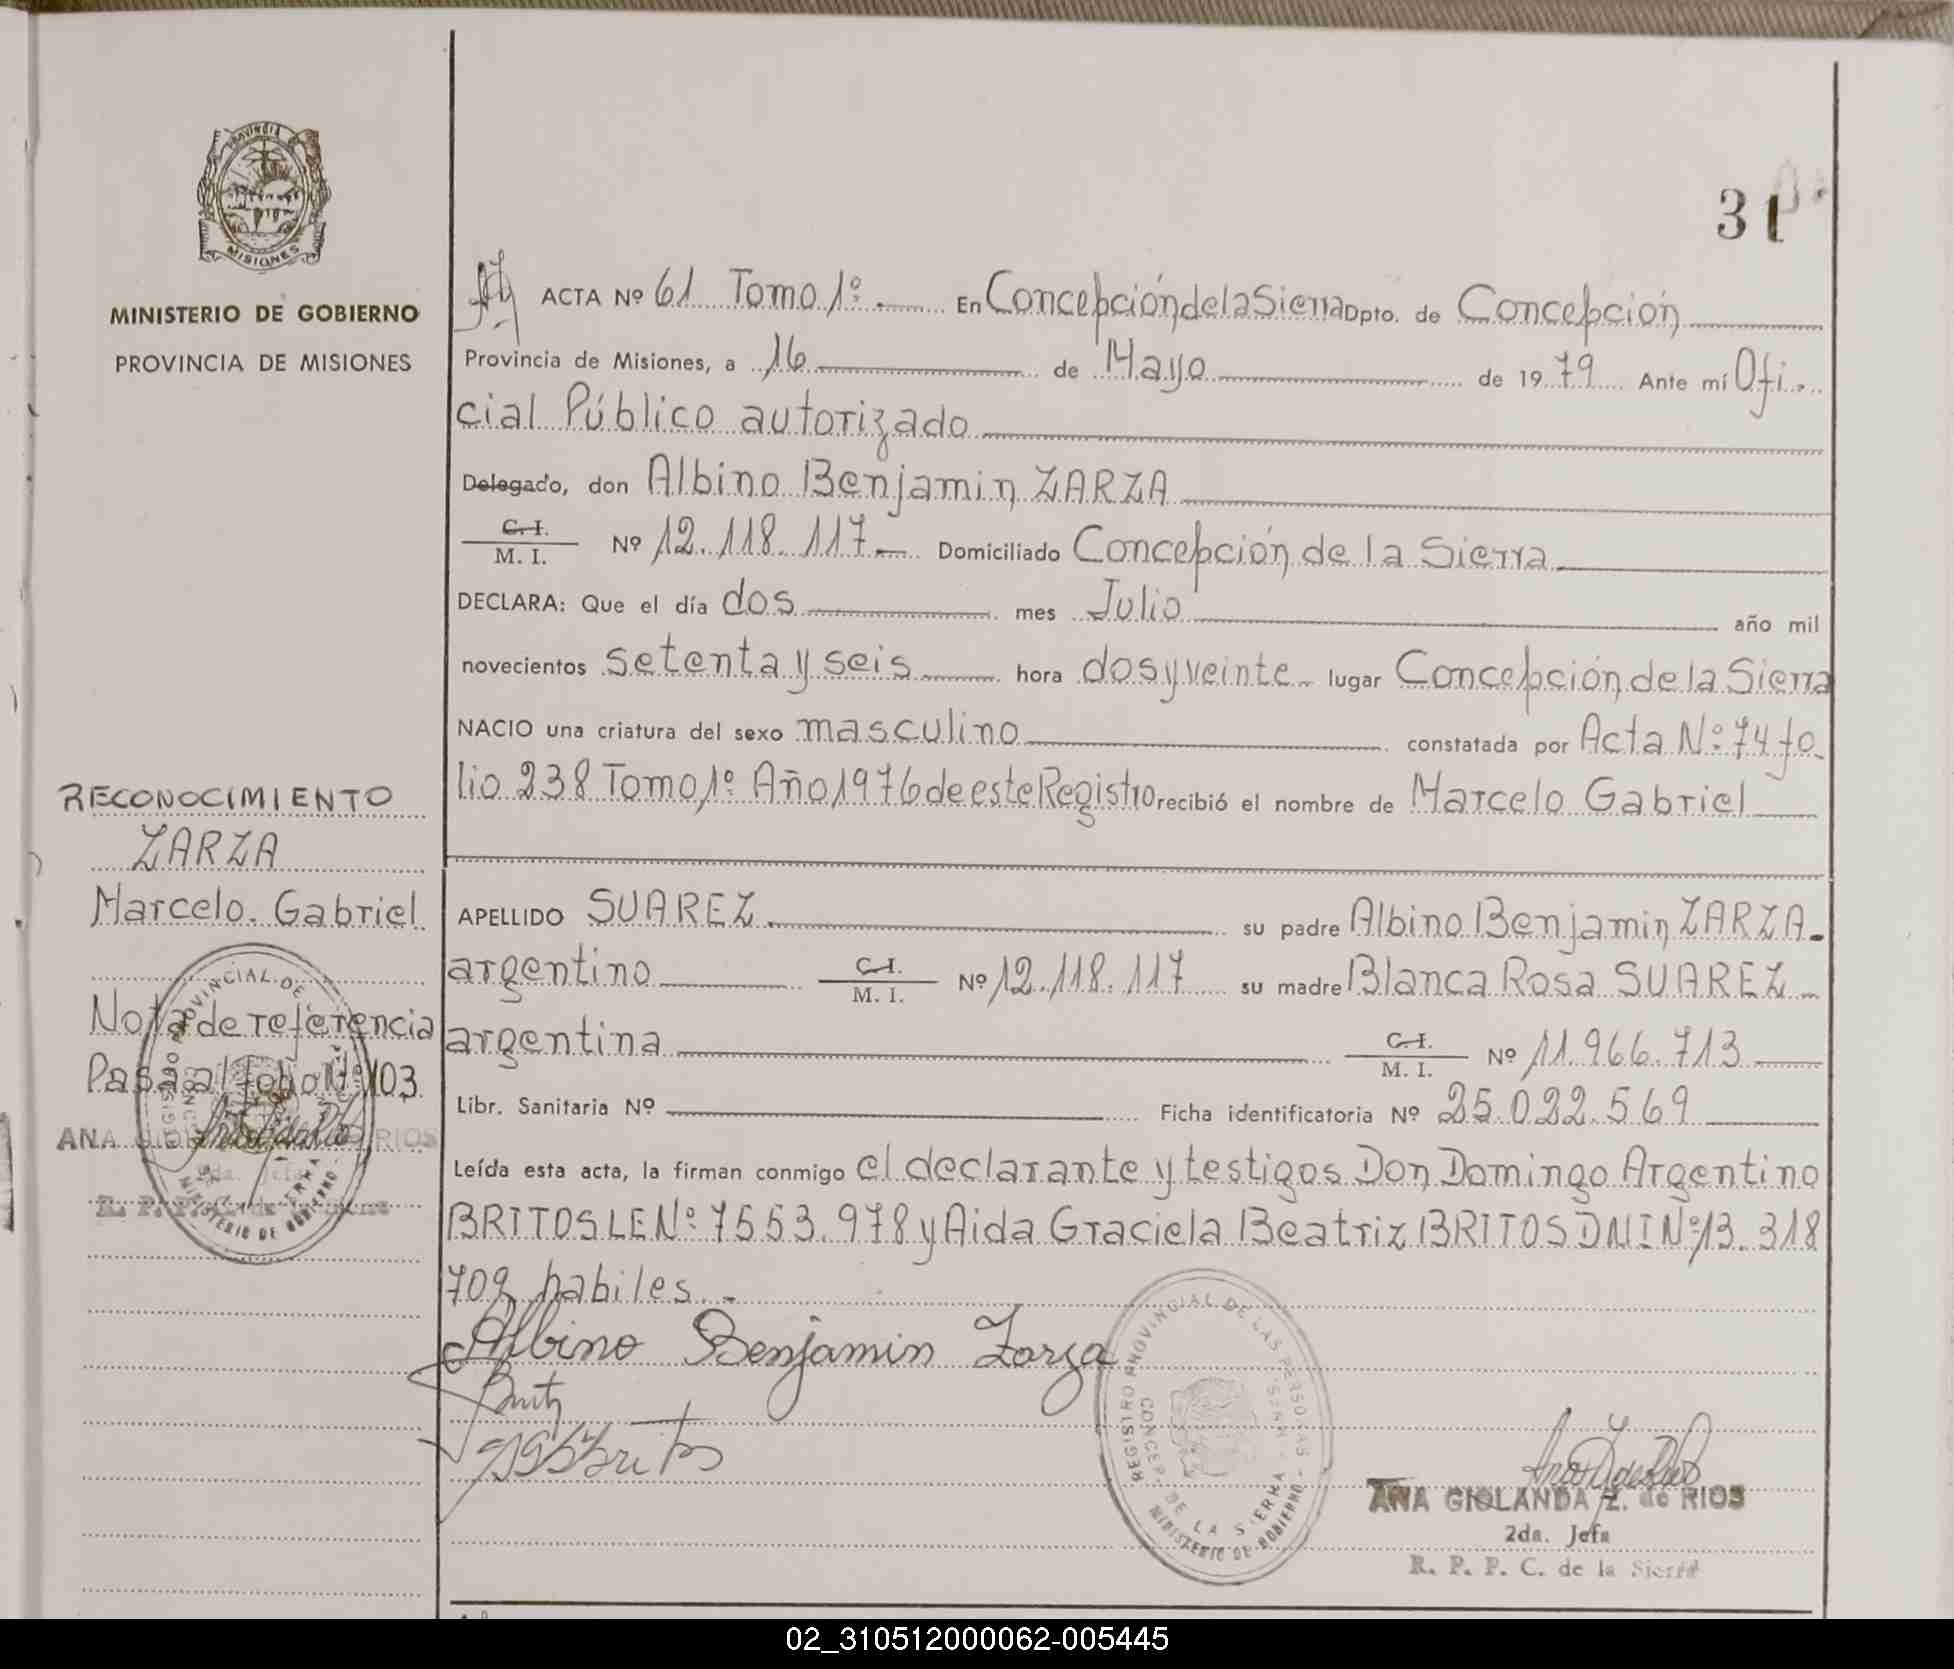 PROVINCIA
MISIONES
MINISTERIO DE GOBIERNO
PROVINCIA DE MISIONES
31
ACTA Nº 61 Tomo 1º.- En Concepción de la Sierra Dpto. de Concepción
Provincia de Misiones, a 16 de Mayo de 1979 Ante mí Ofi-
cial Público autorizado
Delegado, don Albino Benjamin ZARZA
C. I.
M. I. Nº 12.118.117.- Domiciliado Concepción de la Sierra
DECLARA: Que el día dos mes Julio año mil
novecientos setenta y seis hora dos y veinte lugar Concepción de la Sierra
NACIO una criatura del sexo masculino constatada por Acta Nº 74 fo
lio 238 Tomo 1º Año 1976 de este Registro recibió el nombre de Marcelo Gabriel
RECONOCIMIENTO
ZARZA
Marcelo Gabriel
Nota de referencia
Pasa al folio Nº 103
ANA RIOS
APELLIDO SUAREZ su padre Albino Benjamin ZARZA-
argentino C. I. M. I. Nº 12.118.117 su madre Blanca Rosa SUAREZ
argentina C. I. M. I. Nº 11.966.713
Libr. Sanitaria Nº Ficha identificatoria Nº 25.022.569
Leída esta acta, la firman conmigo el declarante y testigos Don Domingo Argentino
BRITOS LE Nº 7553.978 y Aida Graciela Beatriz BRITOS DNI Nº 13.318
709 habiles.-
Albino Benjamin Zarza
REGISTRO PROVINCIAL DE LAS PERSONAS
CONCEP. DE LA SIERRA
MINISTERIO DE GOBIERNO
ANA GIOLANDA Z. de RIOS
2da. Jefa
R. P. P. C. de la Sierra
02_310512000062-005445